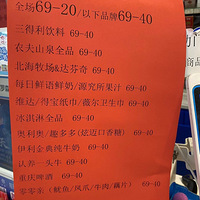 全场69-20/以下品牌69-40
三得利饮料 69-40
农夫山泉全品 69-40
北海牧场&达芬奇 69-40
每日鲜语鲜奶/源究所果汁 69-40
维达/得宝纸巾/薇尔卫生巾 69-40
冰淇淋全品 69-40
奥利奥/趣多多(炫迈口香糖) 69-40
伊利金典纯牛奶 69-40
认养一头牛 69-40
重庆啤酒 69-40
零零家(鱿鱼/凤爪/牛肉/藕片) 69-40